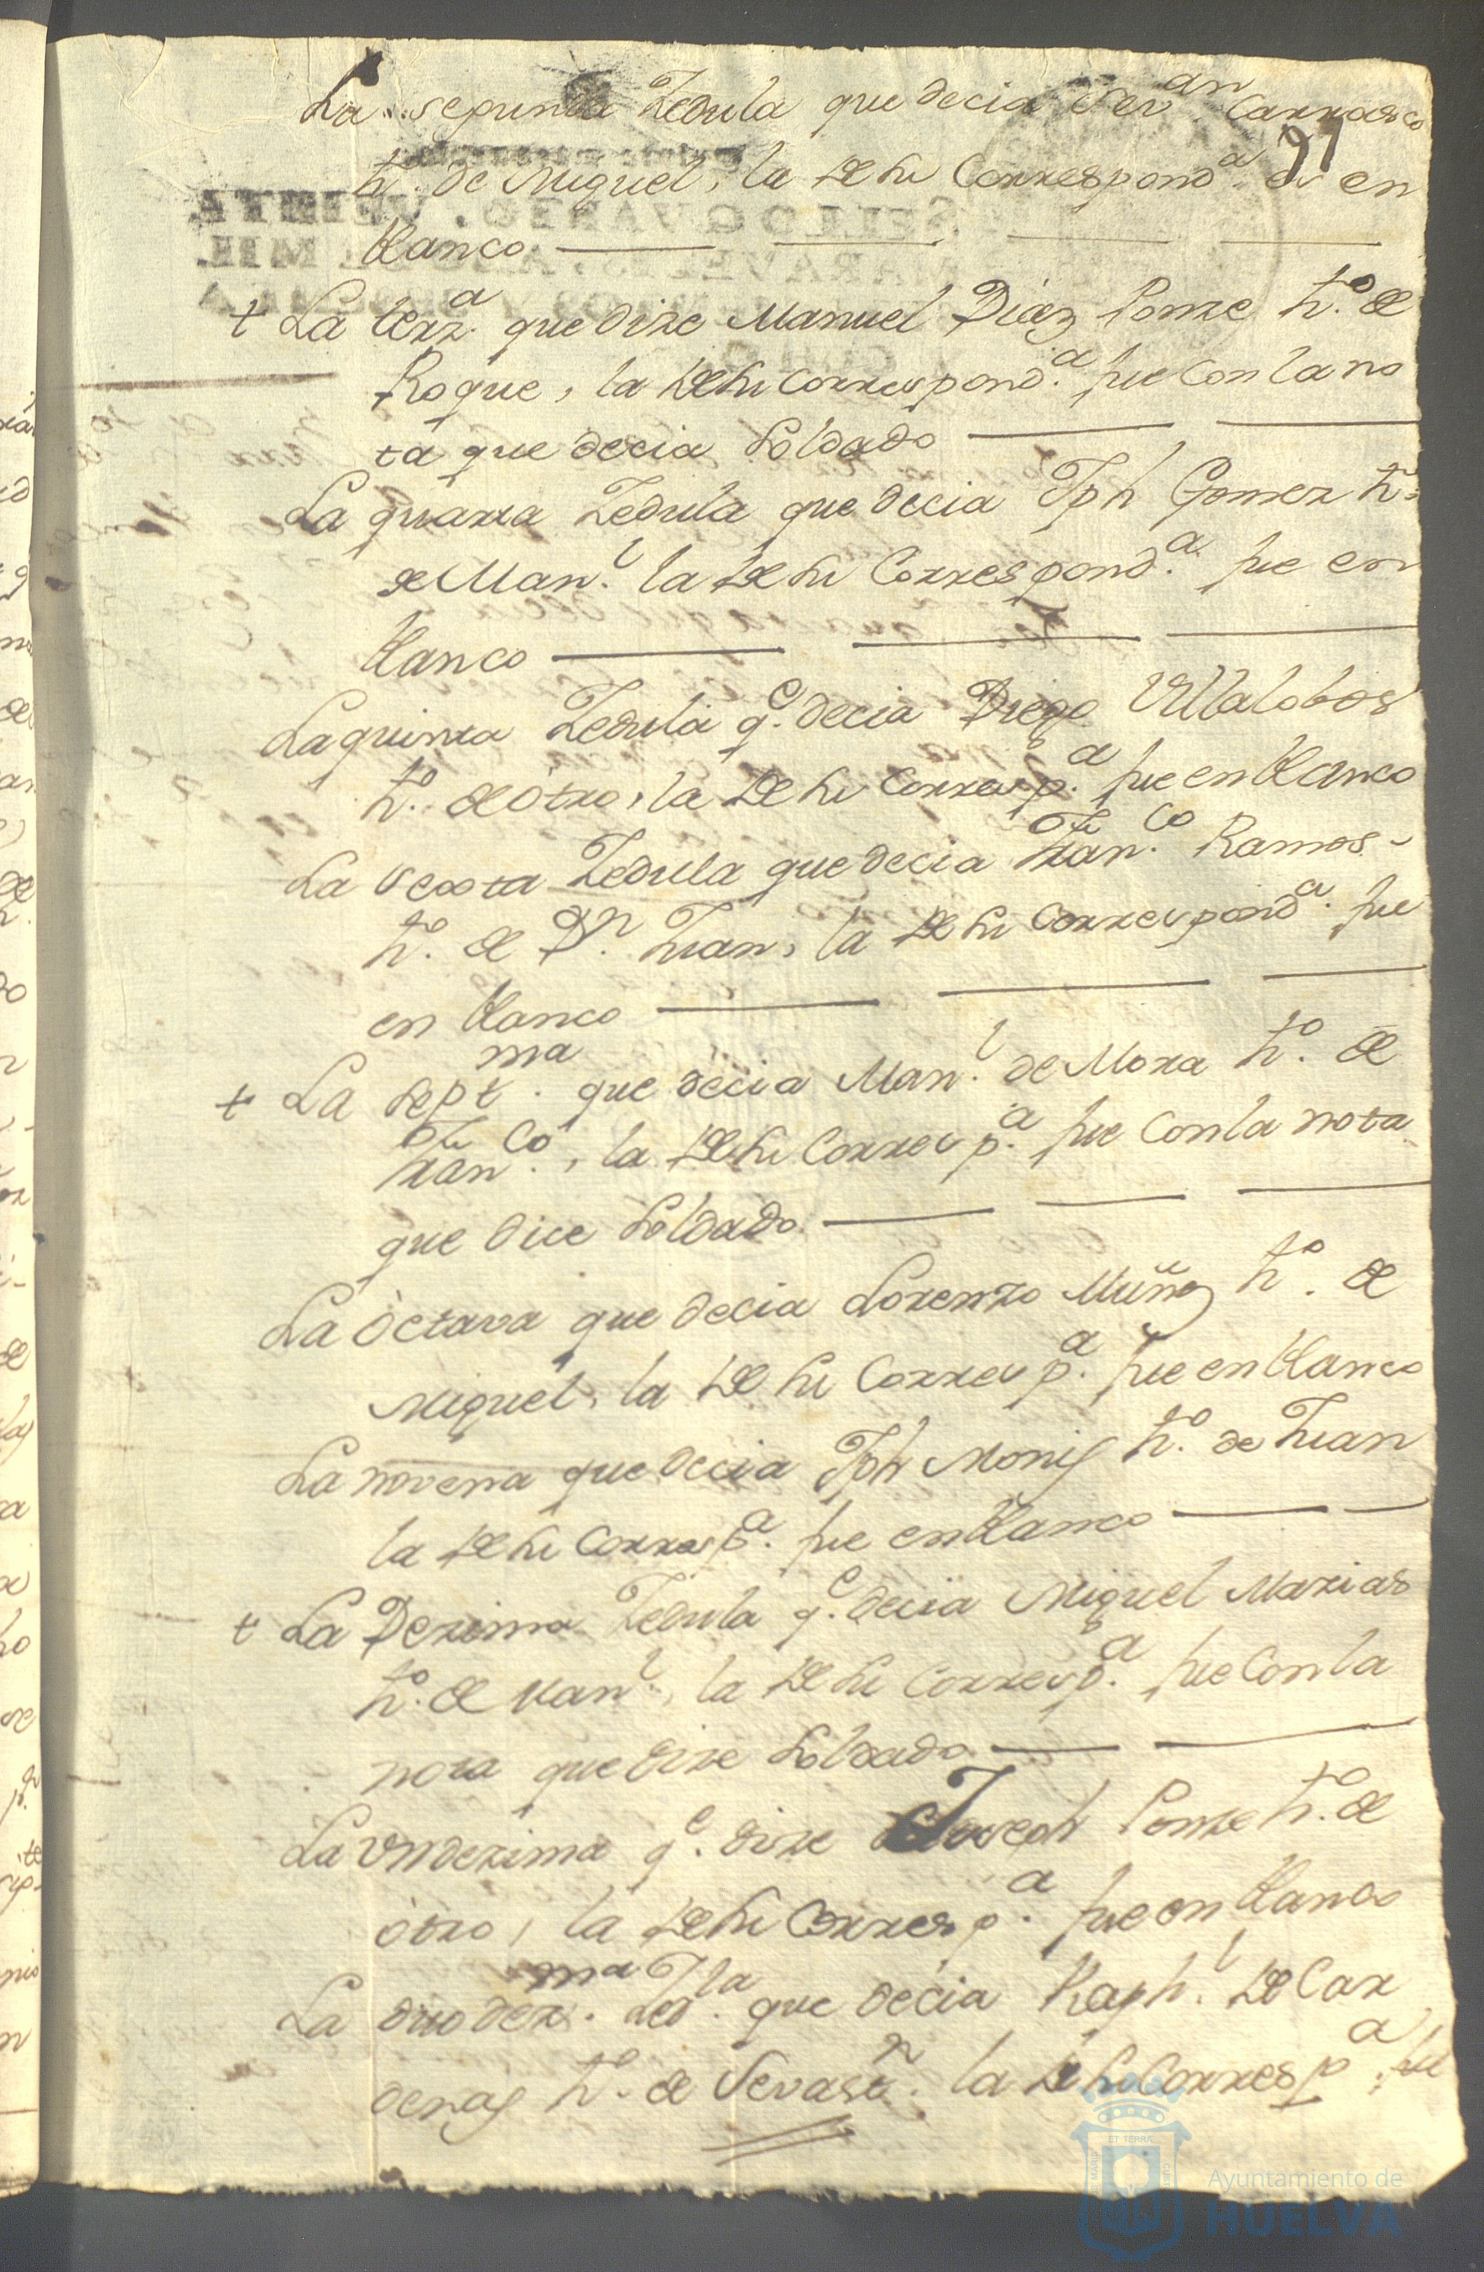 La segunda Zedula que decia Sevan Carrasco
91
ho. de Miguel, la de su Corresponda. es en
blanco
+ La terza. que dize Manuel Diaz Ponze ho. de
Roque, la de su corresponda. fue con la no
ta que decia Soldado
La quarta Zedula que decia Jph Gomez ho.
de Manl. la de su Corresponda. fue en
blanco
La quinta Zedula qe. decia Diego Villalobos
ho. de otro, la de su Correspa. fue en blanco
La sexta Zedula que decia franco. Ramos
ho. de Dn. Juan, la de su corresponda. fue
en blanco
+ La septma. que decia Manl. de Mora ho. de
franco., la de su Correspa. fue con la nota
que dice Soldado
La octava que decia Lorenzo Muñoz ho. de
Miguel, la de su Correspa. fue en blanco
La novena que decia Jph Moniz ho. de Juan
la de su Corresspa. fue en blanco
+ La Dezima Zedula qe. decia Miguel Mazias
ho. de Manl., la de su corresspa. fue con la
nota que dize Soldado
La undezima qe. dize Joseph Ponze ho. de
otro, la de su Corresspa. fue en blanco
La duodezma. Zedla. que decia Raphl. de Car
denas ho. de Sevastn. la de su Corresspa. fue
Ayuntamiento de
HUELVA